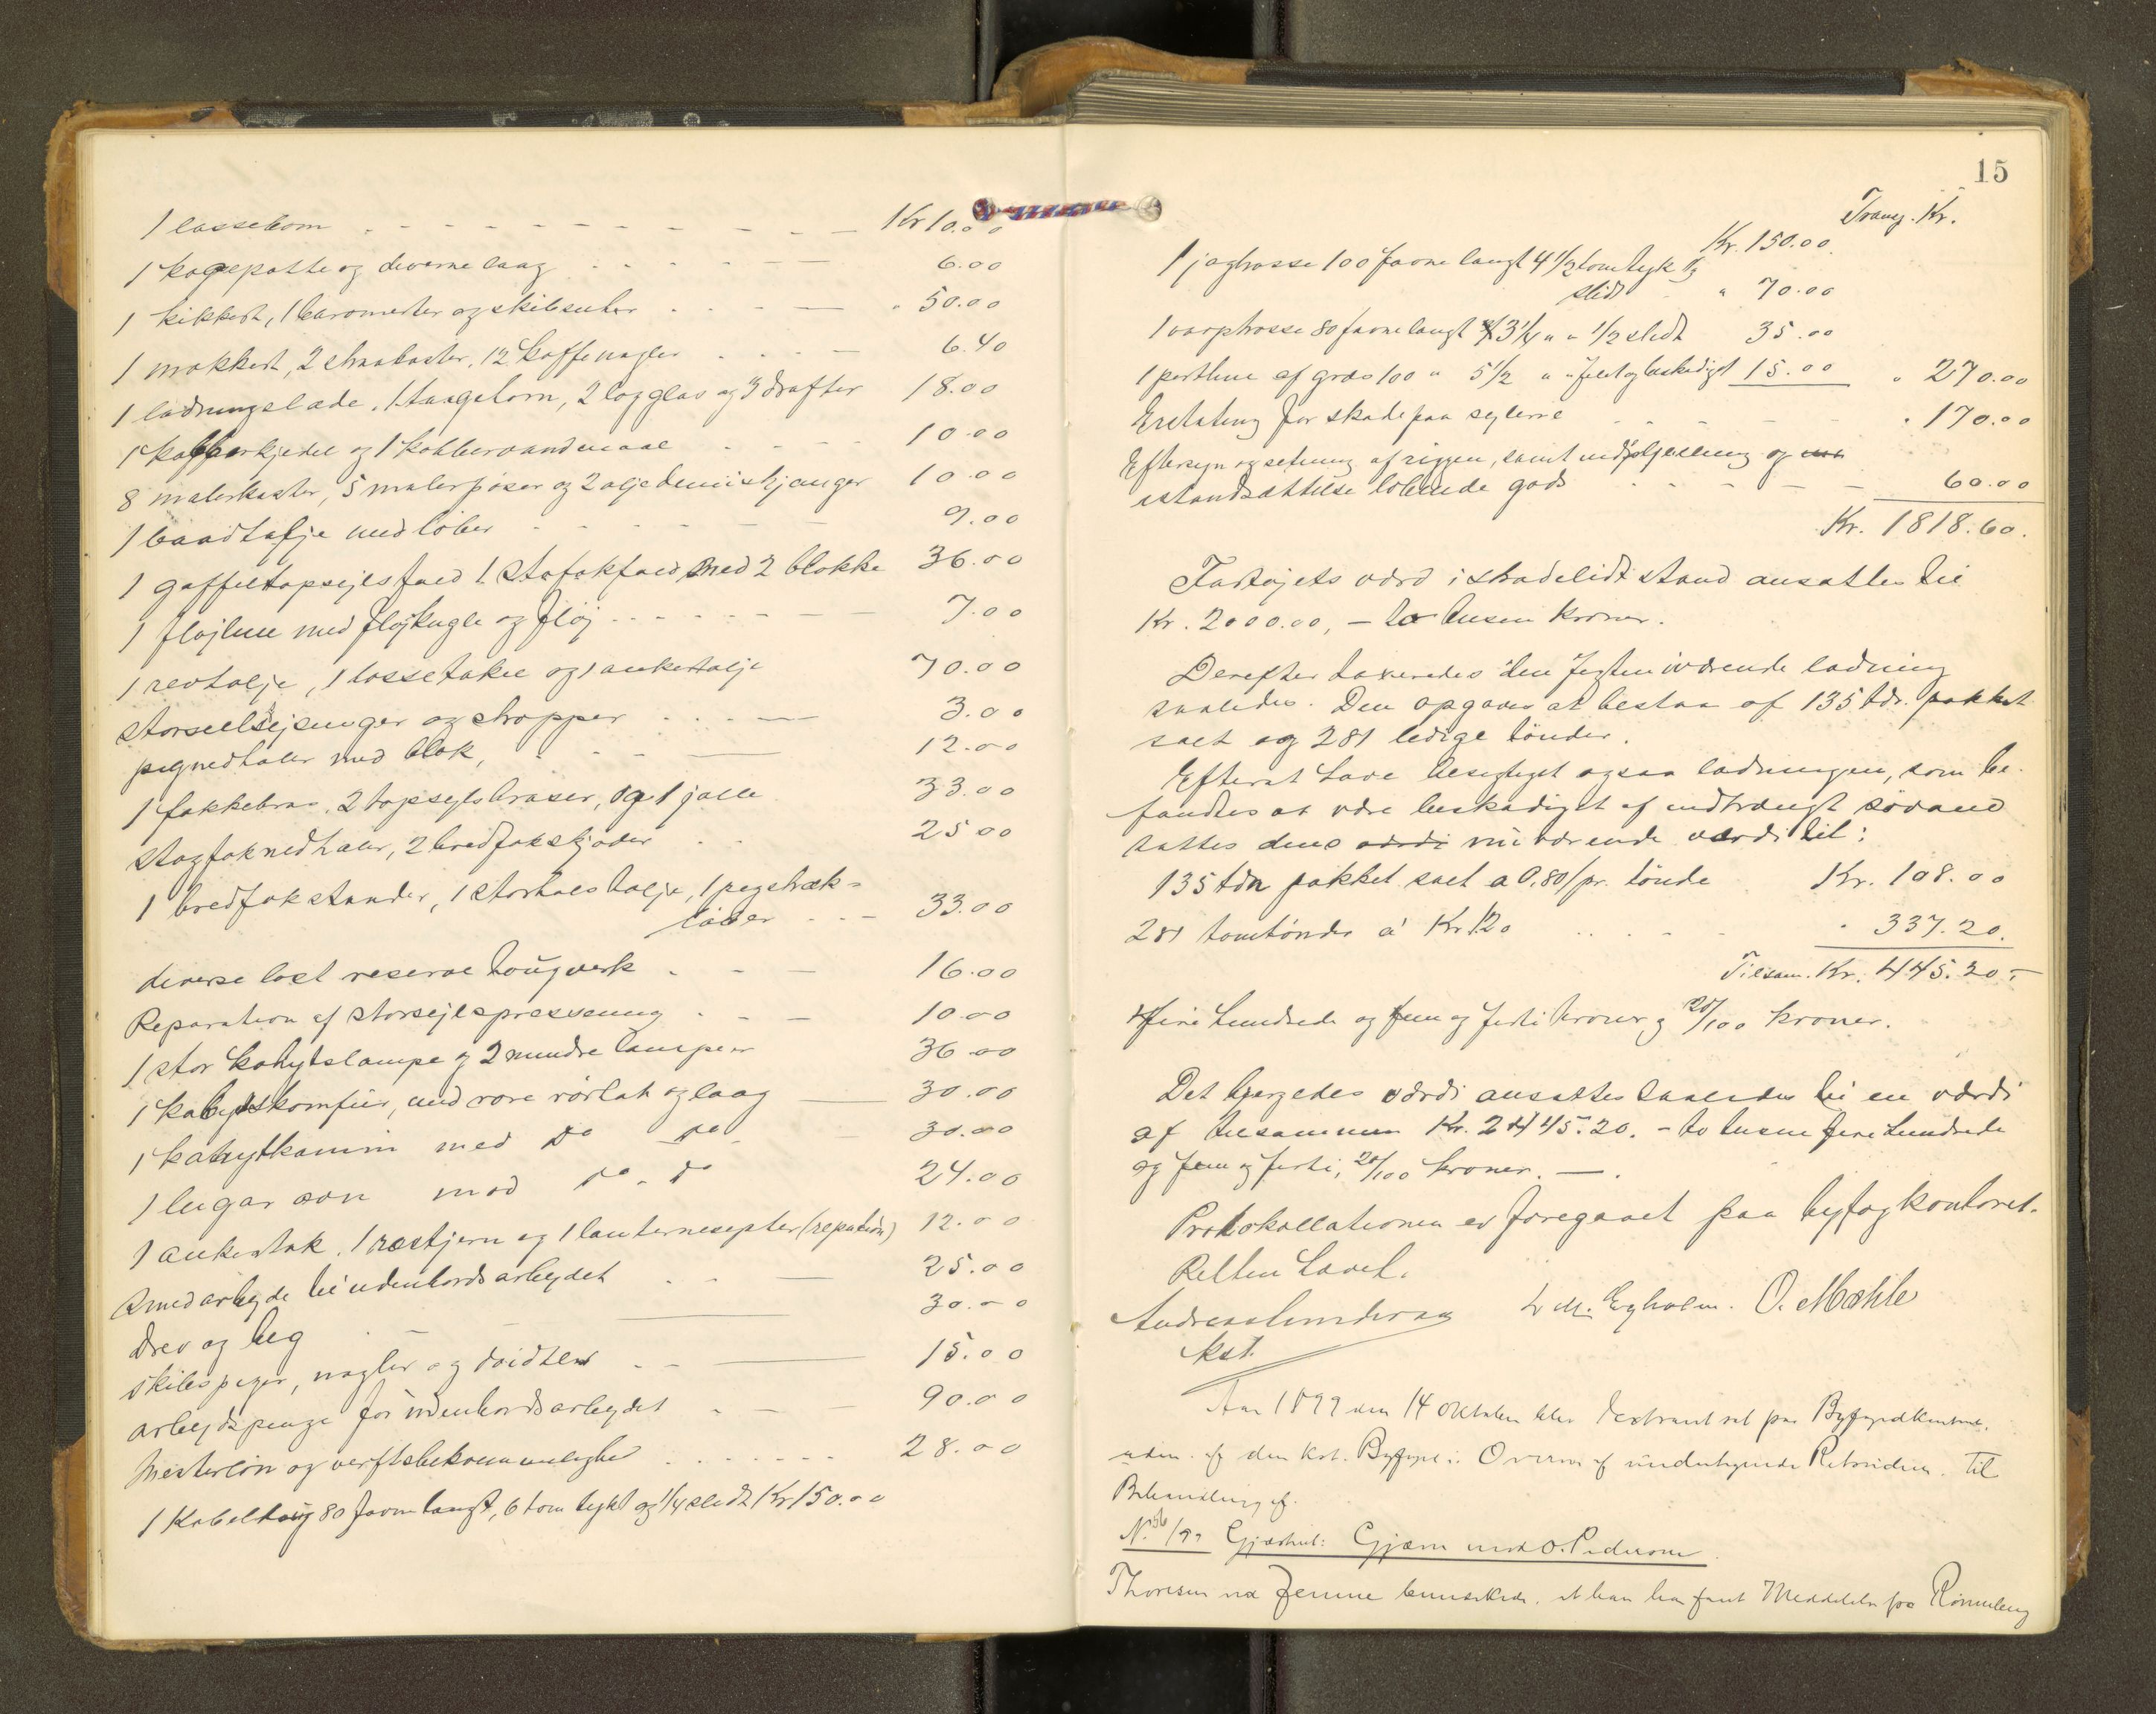 1 lassebom - - - - Kr 10.00
1 kogepotte og diverse laag - - - 6.00
1 kikkert, 1 barometer og skibsuhr - - " 50.00
1 mokkert, 2 straakoster, 12 koffenagler - - 6.40
1 ladningslade, 1 taagehorn, 2 logglas og 3 drafter 18.00
1 kobberkjedel og 1 kobbervandmaal - - 10.00
8 malerkoster, 5 malerpøser og 2 oljedunker 10.00
1 baadtalje med løber - - - 9.00
1 gaffeltopsejlsfald 1 stagfokfald med 2 blokke 36.00
1 fløjline med fløjkugle og fløj - - - 7.00
1 revtalje, 1 lossetakel og 1 ankertalje 70.00
storseilsejsinger og stropper - - - 3.00
pignedhaler med blok, - - 12.00
1 fokkebras, 2 topsejlsbraser, og 1 jolle 33.00
stagfoknedhaler, 2 bredfokskjøder - 25.00
1 bredfokstander, 1 storhalstalje, 1 pegstræk-
løber - - 33.00
diverse løst reserve tougverk - - 16.00
Reparation af storsejlspressenning - - 10.00
1 stor kahytslampe og 2 mindre lamper 36.00
1 kabyskomfur, med rør rørhat og laag 30.00
1 kahytkamin med do do 30.00
1 lugarovn med do. do 24.00
1 ankerstok, 1 røstjern og 1 lanternesepter (reparation) 12.00
Smedarbejde til udenbordsarbejdet - - 25.00
Drev og beg - 30.00
Skibspiger, nagler og - - 15.00
arbejdspenge for udenbordsarbejdet - - 90.00
Mesterløn og verftsbekvemmelighed - - - 28.00
1 Kabeltoug 80 favne langt, 6 tom tykt og 1/4 slidt Kr 150.00
15
Transp. Kr.
Kr. 150.00
1 jaghrosse 100 favne langt 4 1/2 tom tyk og
slidt - " 70.00
1 varphrosse 80 favne langt 3 1/4 " " 1/2 slidt 35.00
1 pertline af græs 100 " 5 1/2 " " og beskadiget 15.00 " 270.00
Erstatning for skade paa sejlene - - - " 170.00
Eftersyn og setning af riggen, samt og
istandsættelse løbende gods - - - 60.00
Kr. 1818.60.
Fartøjets værd i skadelidt stand ansattes til
Kr. 2000.00, - to tusen kroner.
Derefter taxeredes den Jegten iværende ladning
saaledes. Den opgaves at bestaa af 135 tdr. pakket
salt og 281 ledige tønder.
Efterat have besigtiget ogsaa ladningen, som be-
fandtes at være beskadiget af indtrængt søvand
sattes dens nuværende værdi til:
135 tdr pakket salt a 0,80/pr. tønde Kr. 108.00
281 tomtønder à Kr 1.20 - - - " 337.20.
Tilsam. Kr. 445.20.-
Fire hundrede og fem og forti kroner og 20/100 kroner.
Det bjergedes værdi ansattes saaledes til en værdi
af tilsammen Kr. 2445.20. - to tusen fire hundrede
og fem og forti, 20/100 kroner. - .
Protokollationen er foregaaet paa byfogkontoret.
Retten hævet.
L. M. Egholm. O. Mæhle
kst.
Aar 1899 den 14 Oktober blev Extraret sat paa Byfogedkontoret.
af den kst. Byfoged i Overvær af undertegnede Retsvidner. Til
Behandling af.
No. 56/99 Gjæsteret: Gjæm mod O. Pederson